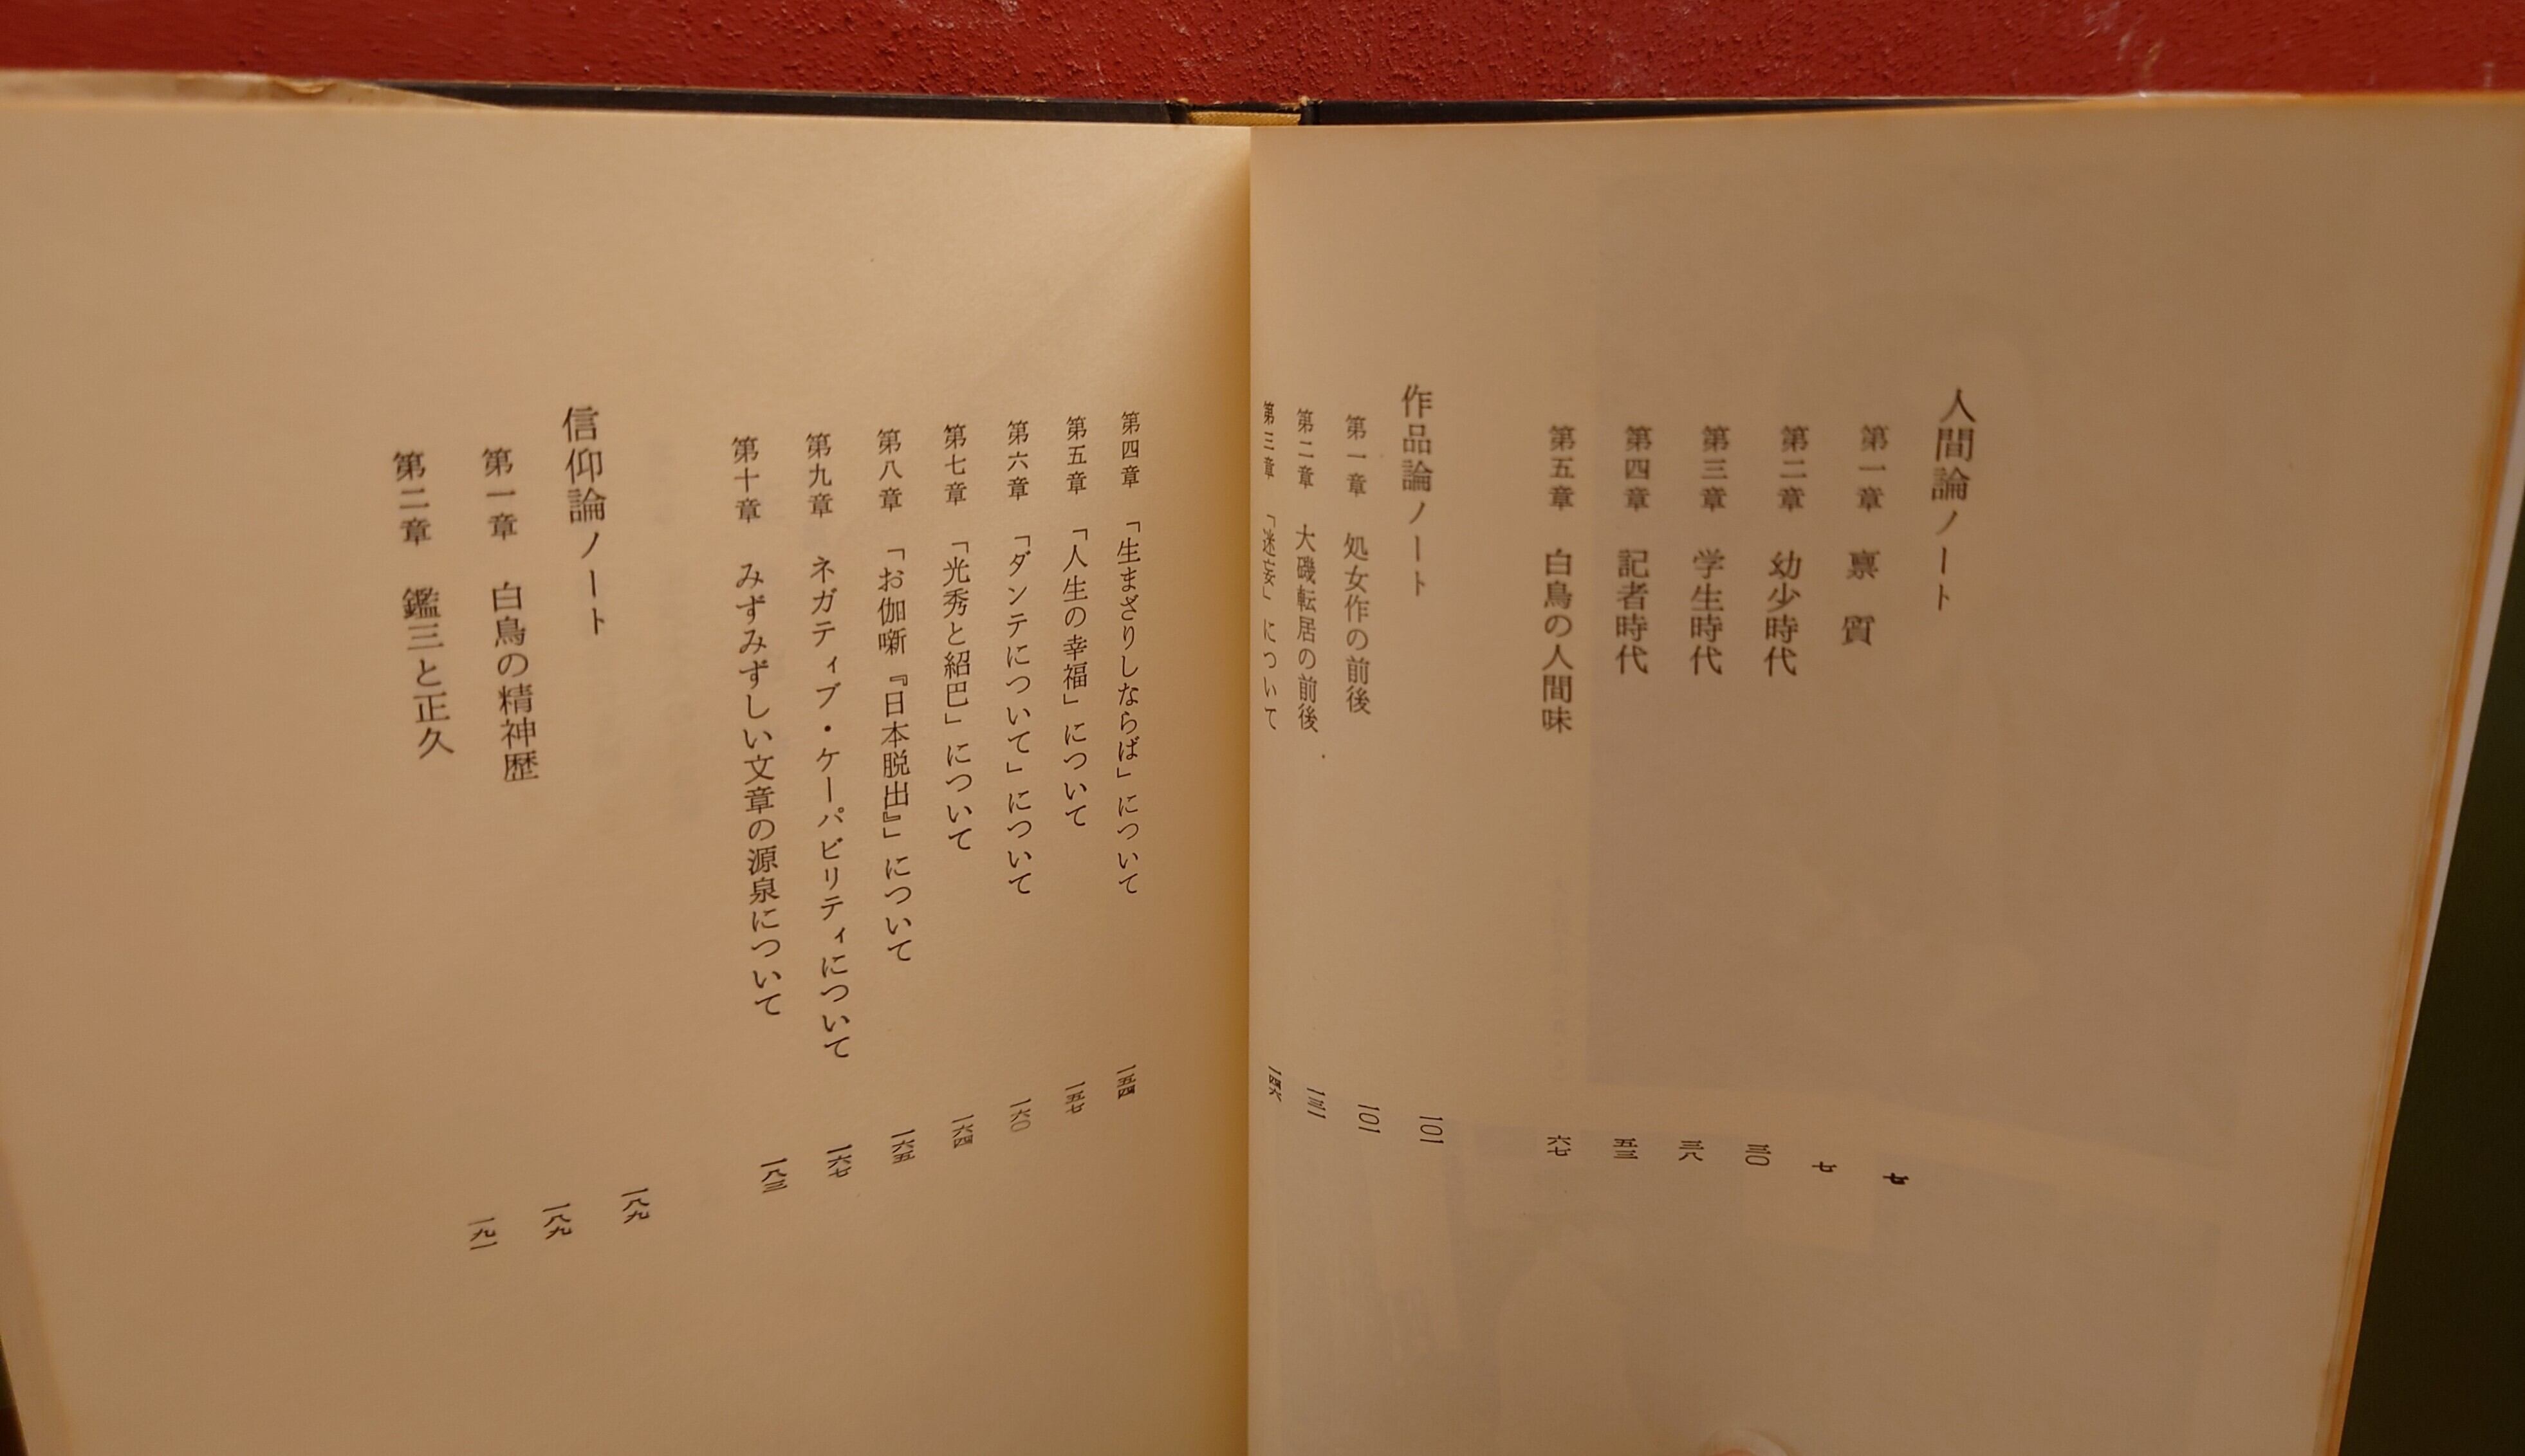 人間論ノート 七
第一章 禀質 七
第二章 幼少時代 三〇
第三章 学生時代 三八
第四章 記者時代 五三
第五章 白鳥の人間味 六七
作品論ノート 一〇一
第一章 処女作の前後 一〇一
第二章 大磯転居の前後 一三一
第三章 「迷妄」について 一四六
第四章 「生まざりしならば」について 一五四
第五章 「人生の幸福」について 一五七
第六章 「ダンテについて」について 一六〇
第七章 「光秀と紹巴」について 一六四
第八章 「お伽噺『日本脱出』」について 一六五
第九章 ネガティブ・ケーパビリティについて 一六七
第十章 みずみずしい文章の源泉について 一八三
信仰論ノート 一八九
第一章 白鳥の精神歴 一八九
第二章 鑑三と正久 一九一